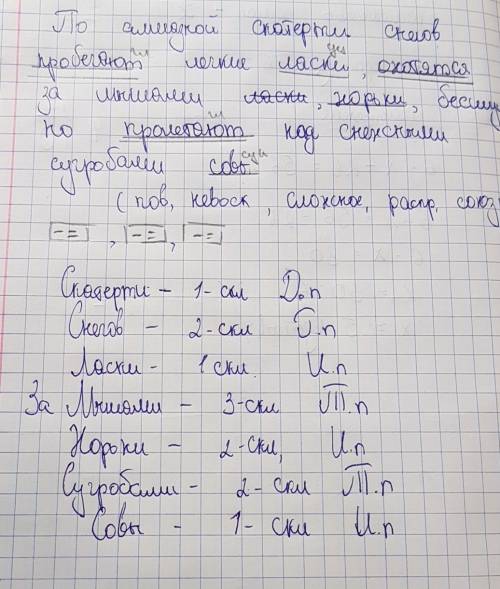 По алмазной скатерти снегов
пробегают легкие ласки, охотятся
за мышами ласки, хорьки, бесшу
но пролетают над снежными
сугробами совы
(пов, невоск, сложное, распр, союз
[-=], [-=], [-=]
Скатерти - 1-скл Д.п
Снегов - 2-скл Т.п
Ласки - 1 скл. И.п
За Мышами - 3-скл Т.п
Хорьки - 2-скл, И.п
Сугробами - 2-скл Т.п
Совы - 1-скл И.п